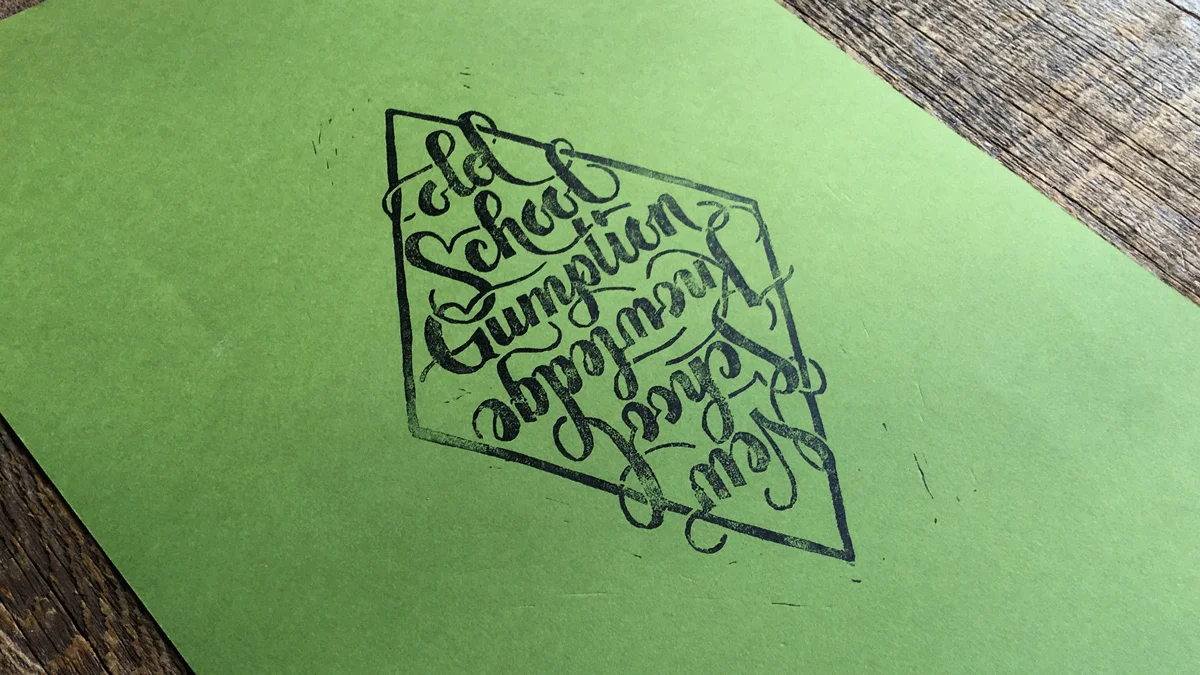 old
School
Gumption
New
School
Knowledge